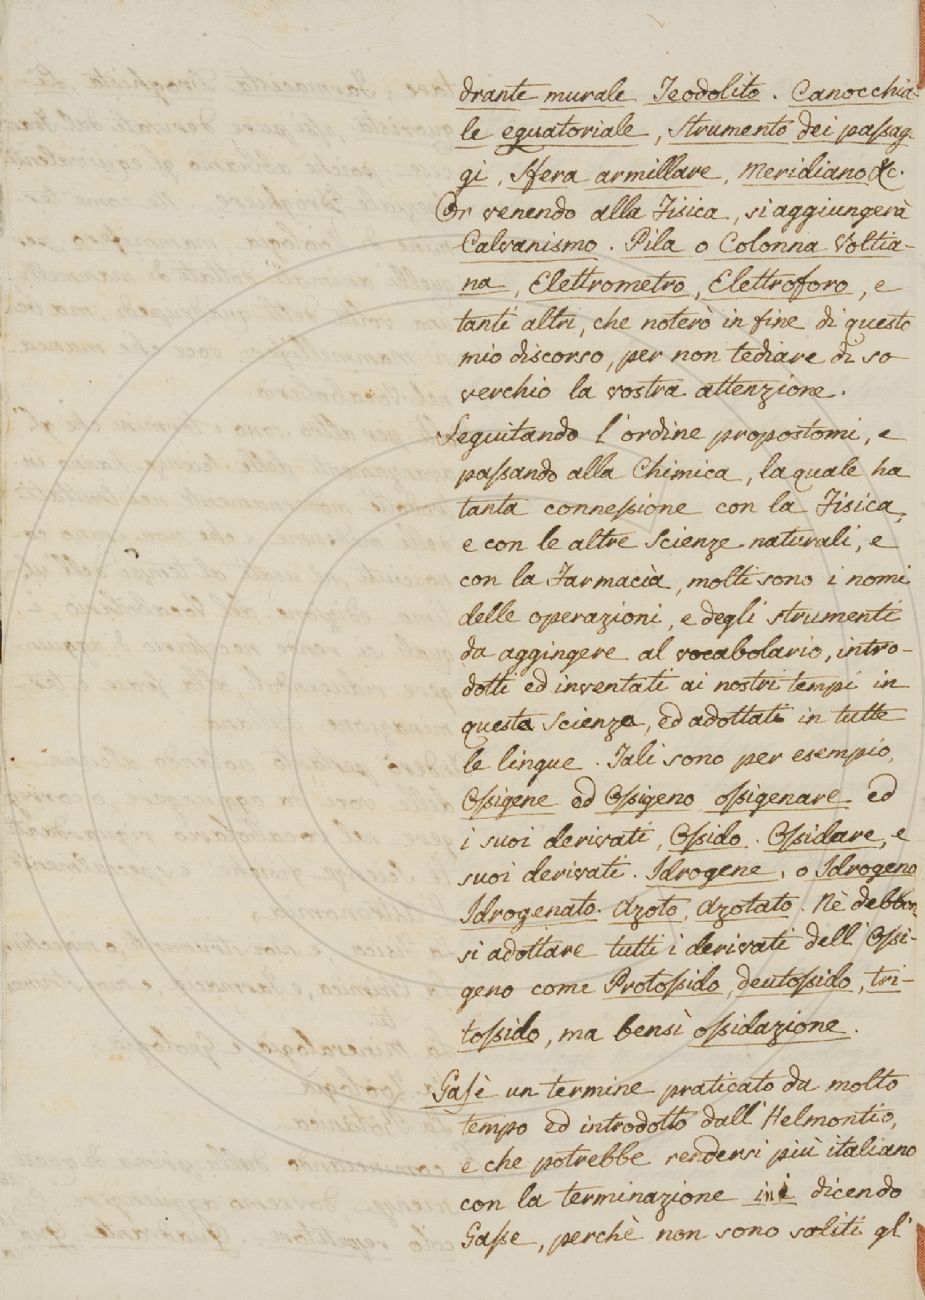 drante murale Teodolito. Canocchia-
le equatoriale, strumento dei passag-
gi, Sfera armillare, Meridiano &c.
Or venendo alla Fisica, si aggiungerà
Galvanismo. Pila o Colonna Voltia-
na, Elettrometro, Elettroforo, e
tanti altri, che noterò in fine di questo
mio discorso, per non tediare di so
verchio la vostra attenzione.
Seguitando l'ordine propostomi, e
passando alla Chimica, la quale ha
tanta connessione con la Fisica,
e con le altre Scienze naturali, e
con la Farmacia, molti sono i nomi
delle operazioni, e degli strumenti
da aggingere al vocabolario, intro-
dotti ed inventati ai nostri tempi in
questa Scienza, ed adottati in tutte
le lingue. Tali sono per esempio,
Ossigene ed Ossigeno ossigenare ed
i suoi derivati, Ossido. Ossidare, e
suoi derivati. Idrogene, o Idrogeno
Idrogenato. Azoto, Azotato. Nè debbon
si adottare tutti i derivati dell'Ossi-
geno come Protossido, deutossido, tri-
tossido, ma bensì ossidazione.
Gas è un termine praticato da molto
tempo ed introdotto dall'Helmontio,
e che potrebbe rendersi più italiano
con la terminazione in dicendo
Gasse, perchè non sono soliti gl'